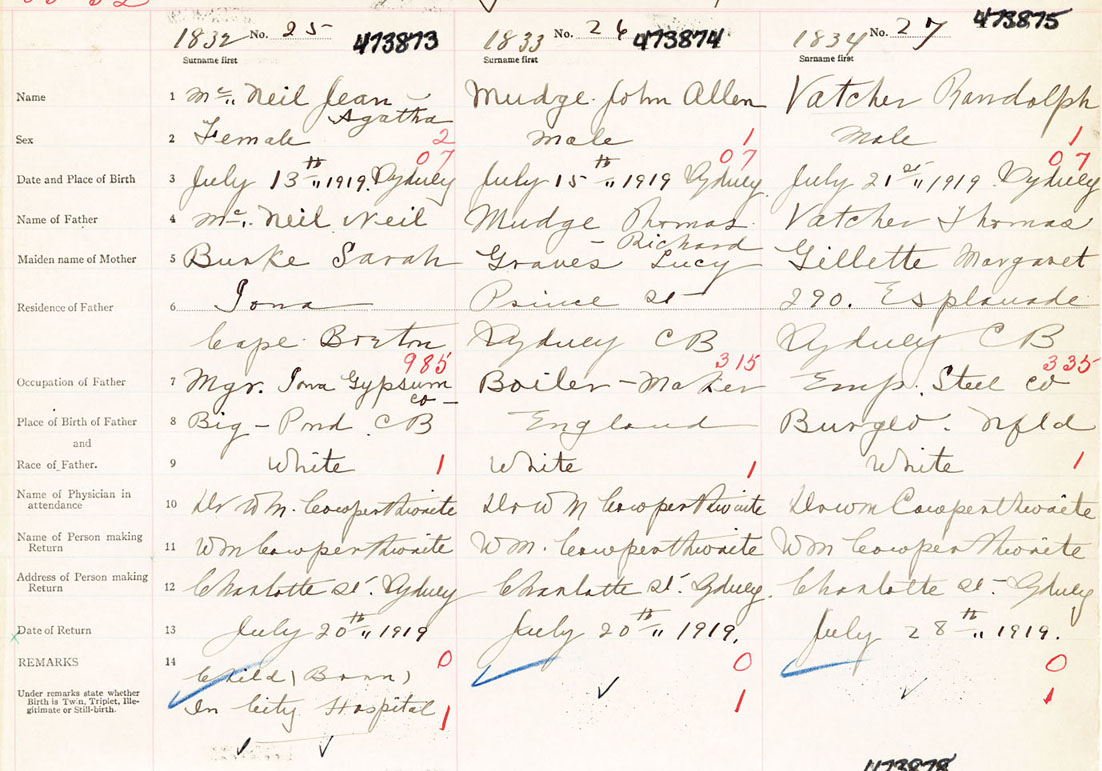 1832 No. 25 473873 1833 No. 26 473874 1834 No. 27 473875
Surname first Surname first Surname first
Name 1 Mc. Neil Jean Agatha Mudge John Allen Vatcher Randolph
Sex 2 Female 2 male 1 Male 1
07 07 07
Date and Place of Birth 3 July 13th " 1919. Sydney July 15th " 1919 Sydney July 21st " 1919. Sydney
Name of Father 4 Mc. Neil Neil Mudge Thomas - Richard Vatcher Thomas
Maiden name of Mother 5 Burke Sarah Graves Lucy Gillette Margaret
Residence of Father 6 Iona Prince St 290. Esplanade
Cape Breton Sydney C B Sydney C B
985 315 335
Occupation of Father 7 Mgr. Iona Gypsum co - Boiler - Maker Emp. Steel co
Place of Birth of Father 8 Big - Pond C B England Burgeo. Nfld
and
Race of Father. 9 White 1 White 1 White 1
Name of Physician in
attendance 10 Dr W M. Cowperthwaite Dr W M Cowperthwaite Dr W M Cowperthwaite
Name of Person making
Return 11 W M Cowperthwaite W M. Cowperthwaite W M Cowperthwaite
Address of Person making
Return 12 Charlotte St. Sydney Charlotte St. Sydney. Charlotte St - Sydney
Date of Return 13 July 20th " 1919 July 20th " 1919. July 28th " 1919.
REMARKS 14 Child (Born) 0 0 0
Under remarks state whether
Birth is Twin, Triplet, Ille-
gitimate or Still-birth.
In City Hospital 1 1 1
473878